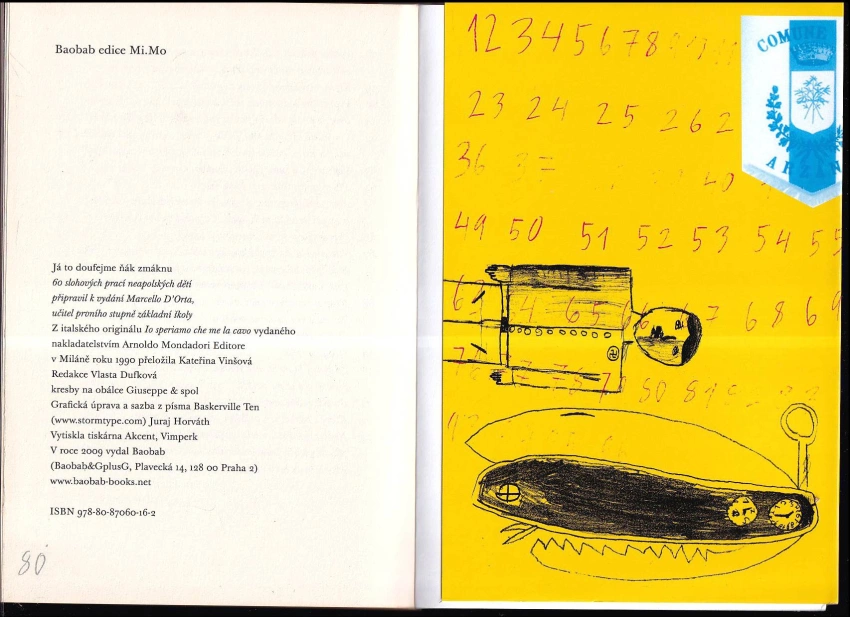 Baobab edice Mi.Mo
Já to doufejme ňák zmáknu
60 slohových prací neapolských dětí
připravil k vydání Marcello D'Orta,
učitel prvního stupně základní školy
Z italského originálu Io speriamo che me la cavo vydaného
nakladatelstvím Arnoldo Mondadori Editore
v Miláně roku 1990 přeložila Kateřina Vinšová
Redakce Vlasta Dufková
kresby na obálce Giuseppe & spol
Grafická úprava a sazba z písma Baskerville Ten
(www.stormtype.com) Juraj Horváth
Vytiskla tiskárna Akcent, Vimperk
V roce 2009 vydal Baobab
(Baobab&GplusG, Plavecká 14, 128 00 Praha 2)
www.baobab-books.net
ISBN 978-80-87060-16-2
80
12345678
COMUNE
23 24 25 26 2
36 37
40
ARZAN
49 50 51 52 53 54 55
65 66 7 68 69
80 81